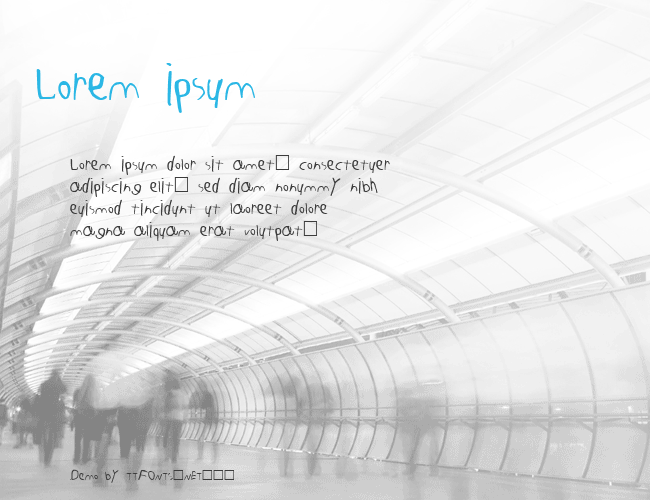 Lorem ipsum
Lorem ipsum dolor sit amet□ consectetuer
adipiscing elit□ sed diam nonummY nibh
euismod tincidunt ut laoreet dolore
magna aliquam erat volutpat□
Demo bY TTFONTS□NET□□□